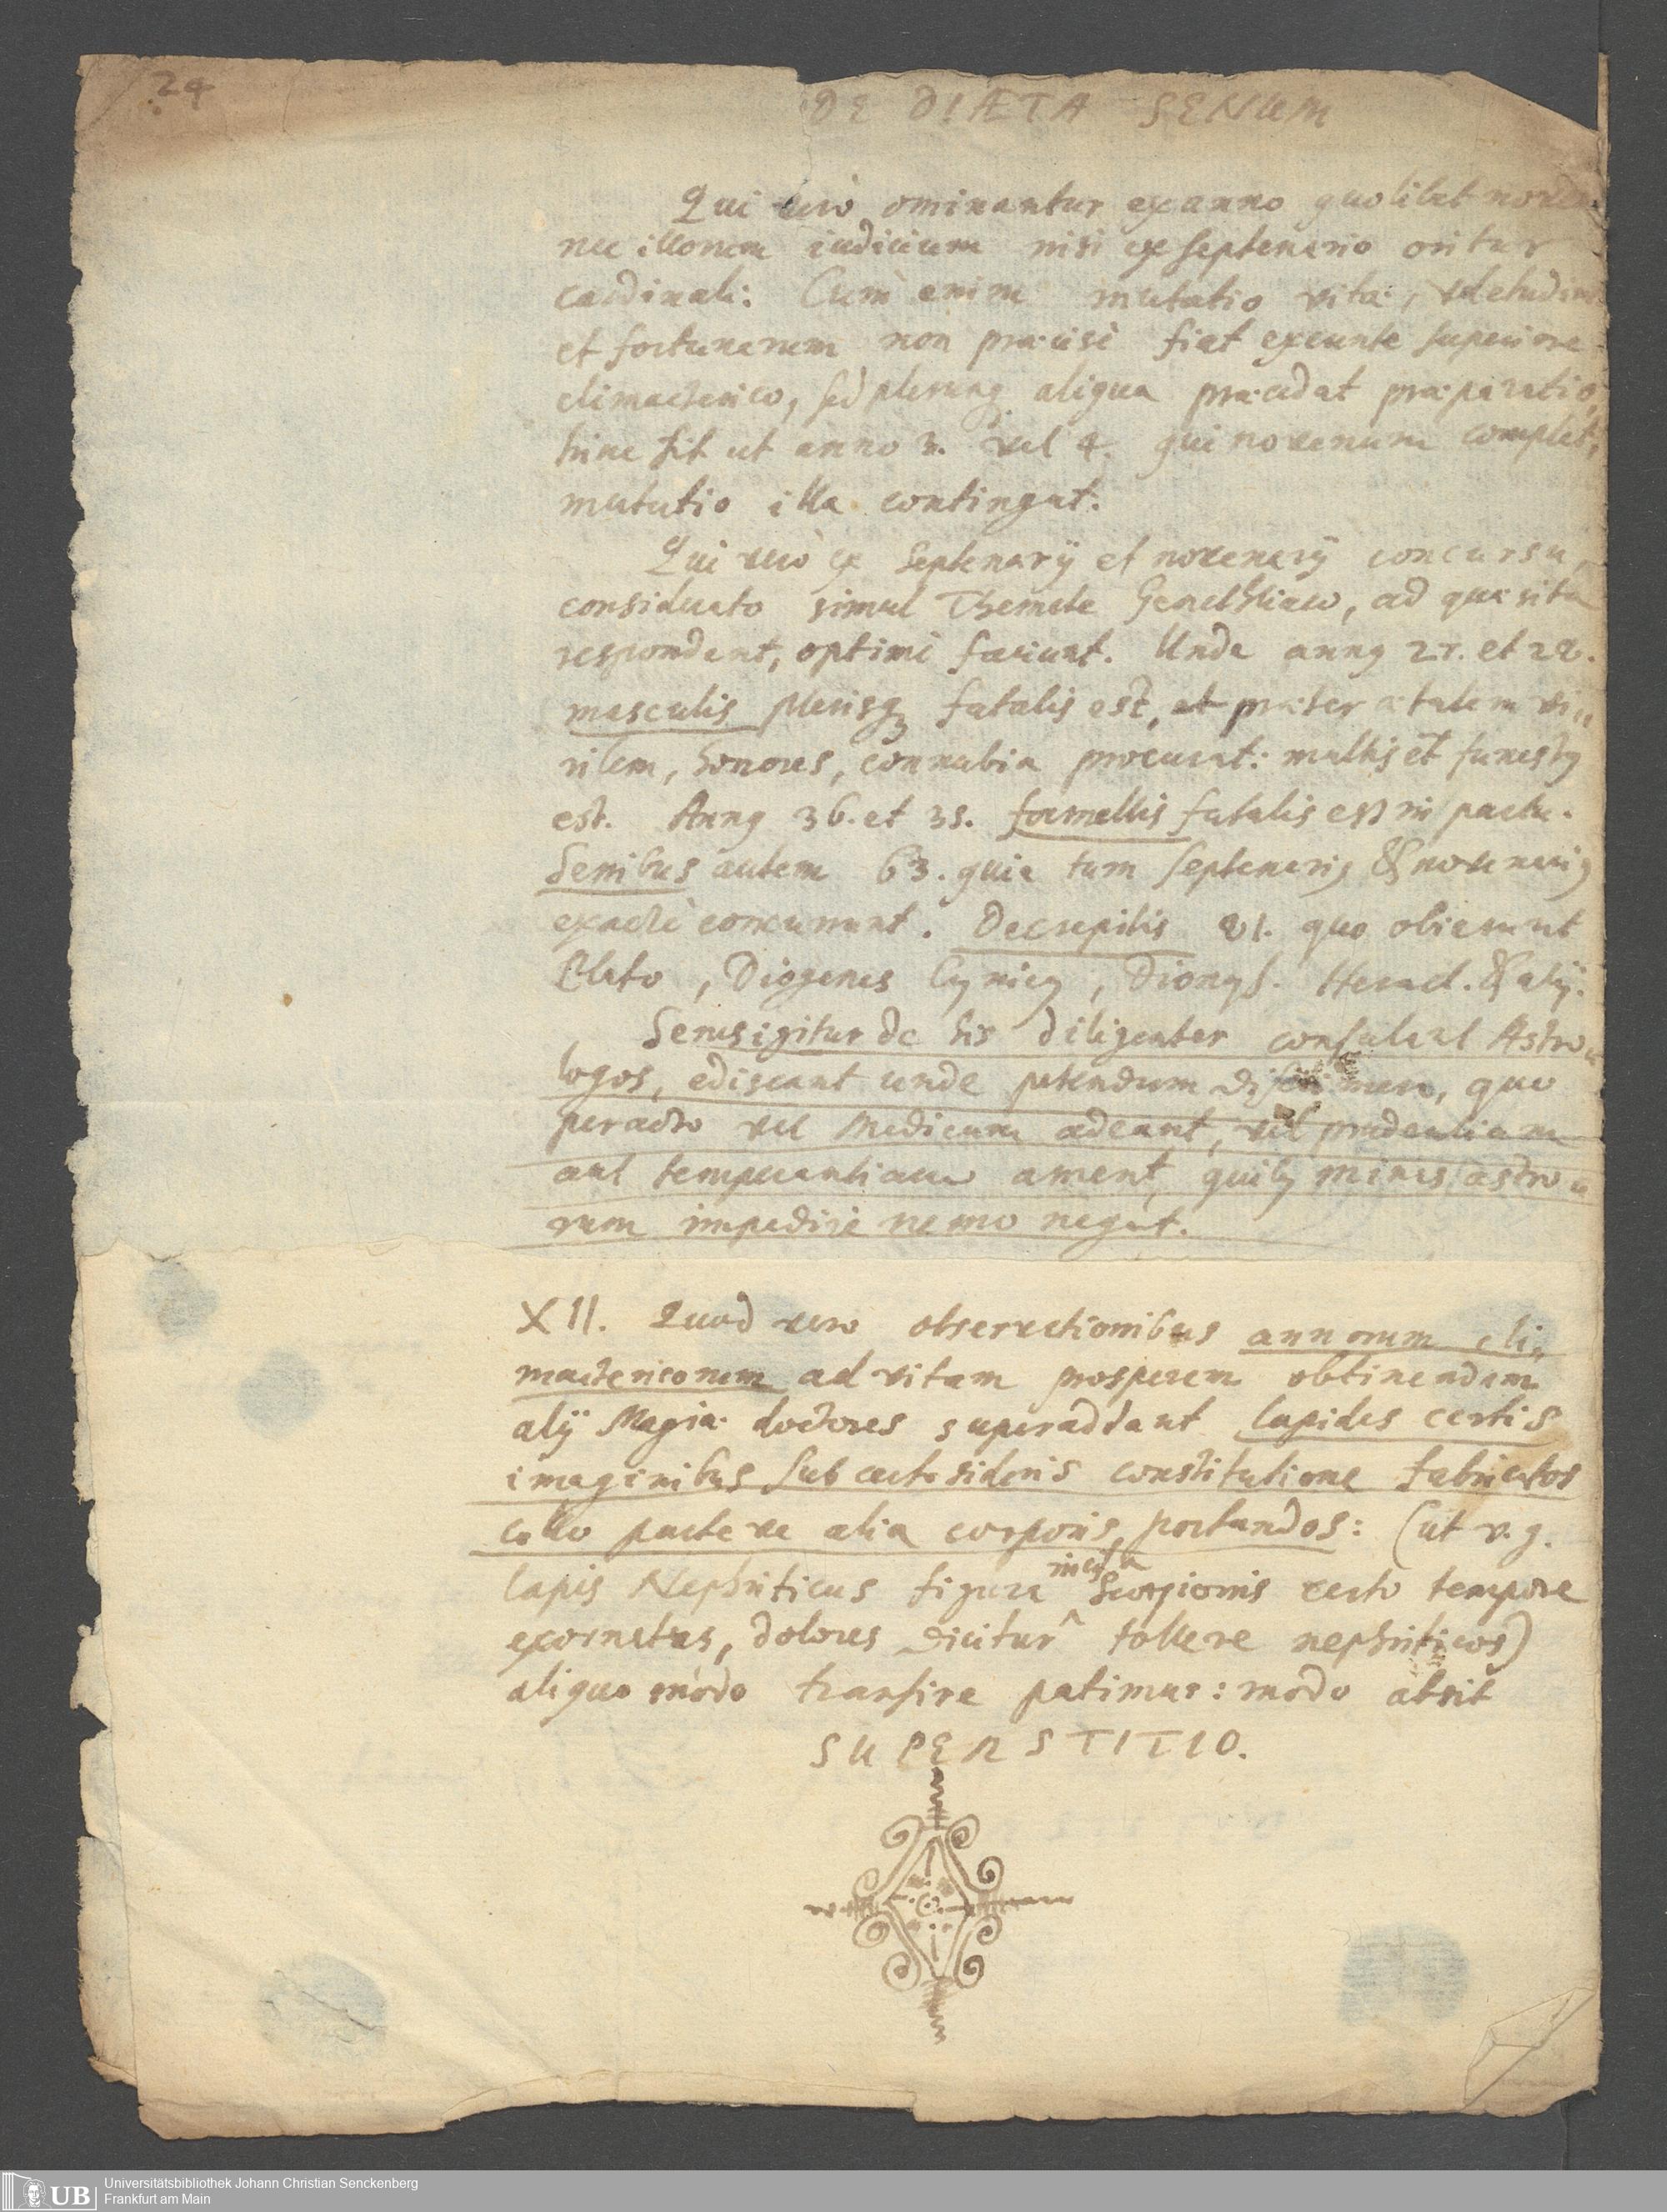 24
DE DIÆTA SENUM
Qui verò ominantur ex anno quolibet noven
nec illorum iudicium nisi ex septenario oritur
cardinali: Cum enim mutatio vitæ, valetudin
et fortunarum non præcisè fiat exeunte superiore
climacterico, sed plerunq aliqua præcedat præparatio,
hinc fit ut anno 3. vel 4. qui novenum complet,
mutatio illa contingat.
Qui verò ex septenarÿ et novenarÿ concursu,
considerato simul Themate Genethliaco, ad quæsita
respondent, optimè faciunt. Unde annꝯ 27. et 28.
masculis plerisqꝫ fatalis est, et præter ætatem vi„
rilem, honores, connubia procurat: multis et funestꝯ
est. Annꝯ 36. et 35. foemellis fatalis est in partu.
Senibus autem 63. quia tum septenariꝯ & novenariꝯ
exactè concurrunt. Decrepitis 81. quo obierunt
Plato, Diogenes Cynicꝯ, Dionys. Heracl. & alÿ.
Senes igitur de his diligenter consulant Astro„
logos, ediscant unde petendum discrimen, quo
peracto vel Medicum adeant, vel prudentiam
aut temperantiam ament, quibꝯ minas astro„
rum impedire nemo negat.
XII. Quod vero observationibus annorum cli„
mactericorum ad vitam prosperam obtinendam
alÿ Magiæ doctores superaddant lapides certis
imaginibus sub certo sideris constitutione fabricatos
collo parte ve alia corporis, portandos: (ut v.g.
lapis Nephriticus figura Scorpionis certo tempore
exornatus, dolores dicitur ^ tollere nephriticos)
aliquo modo transire patimur: modo absit
SUPERSTITIO.
UB
Universitätsbibliothek Johann Christian Senckenberg
Frankfurt am Main